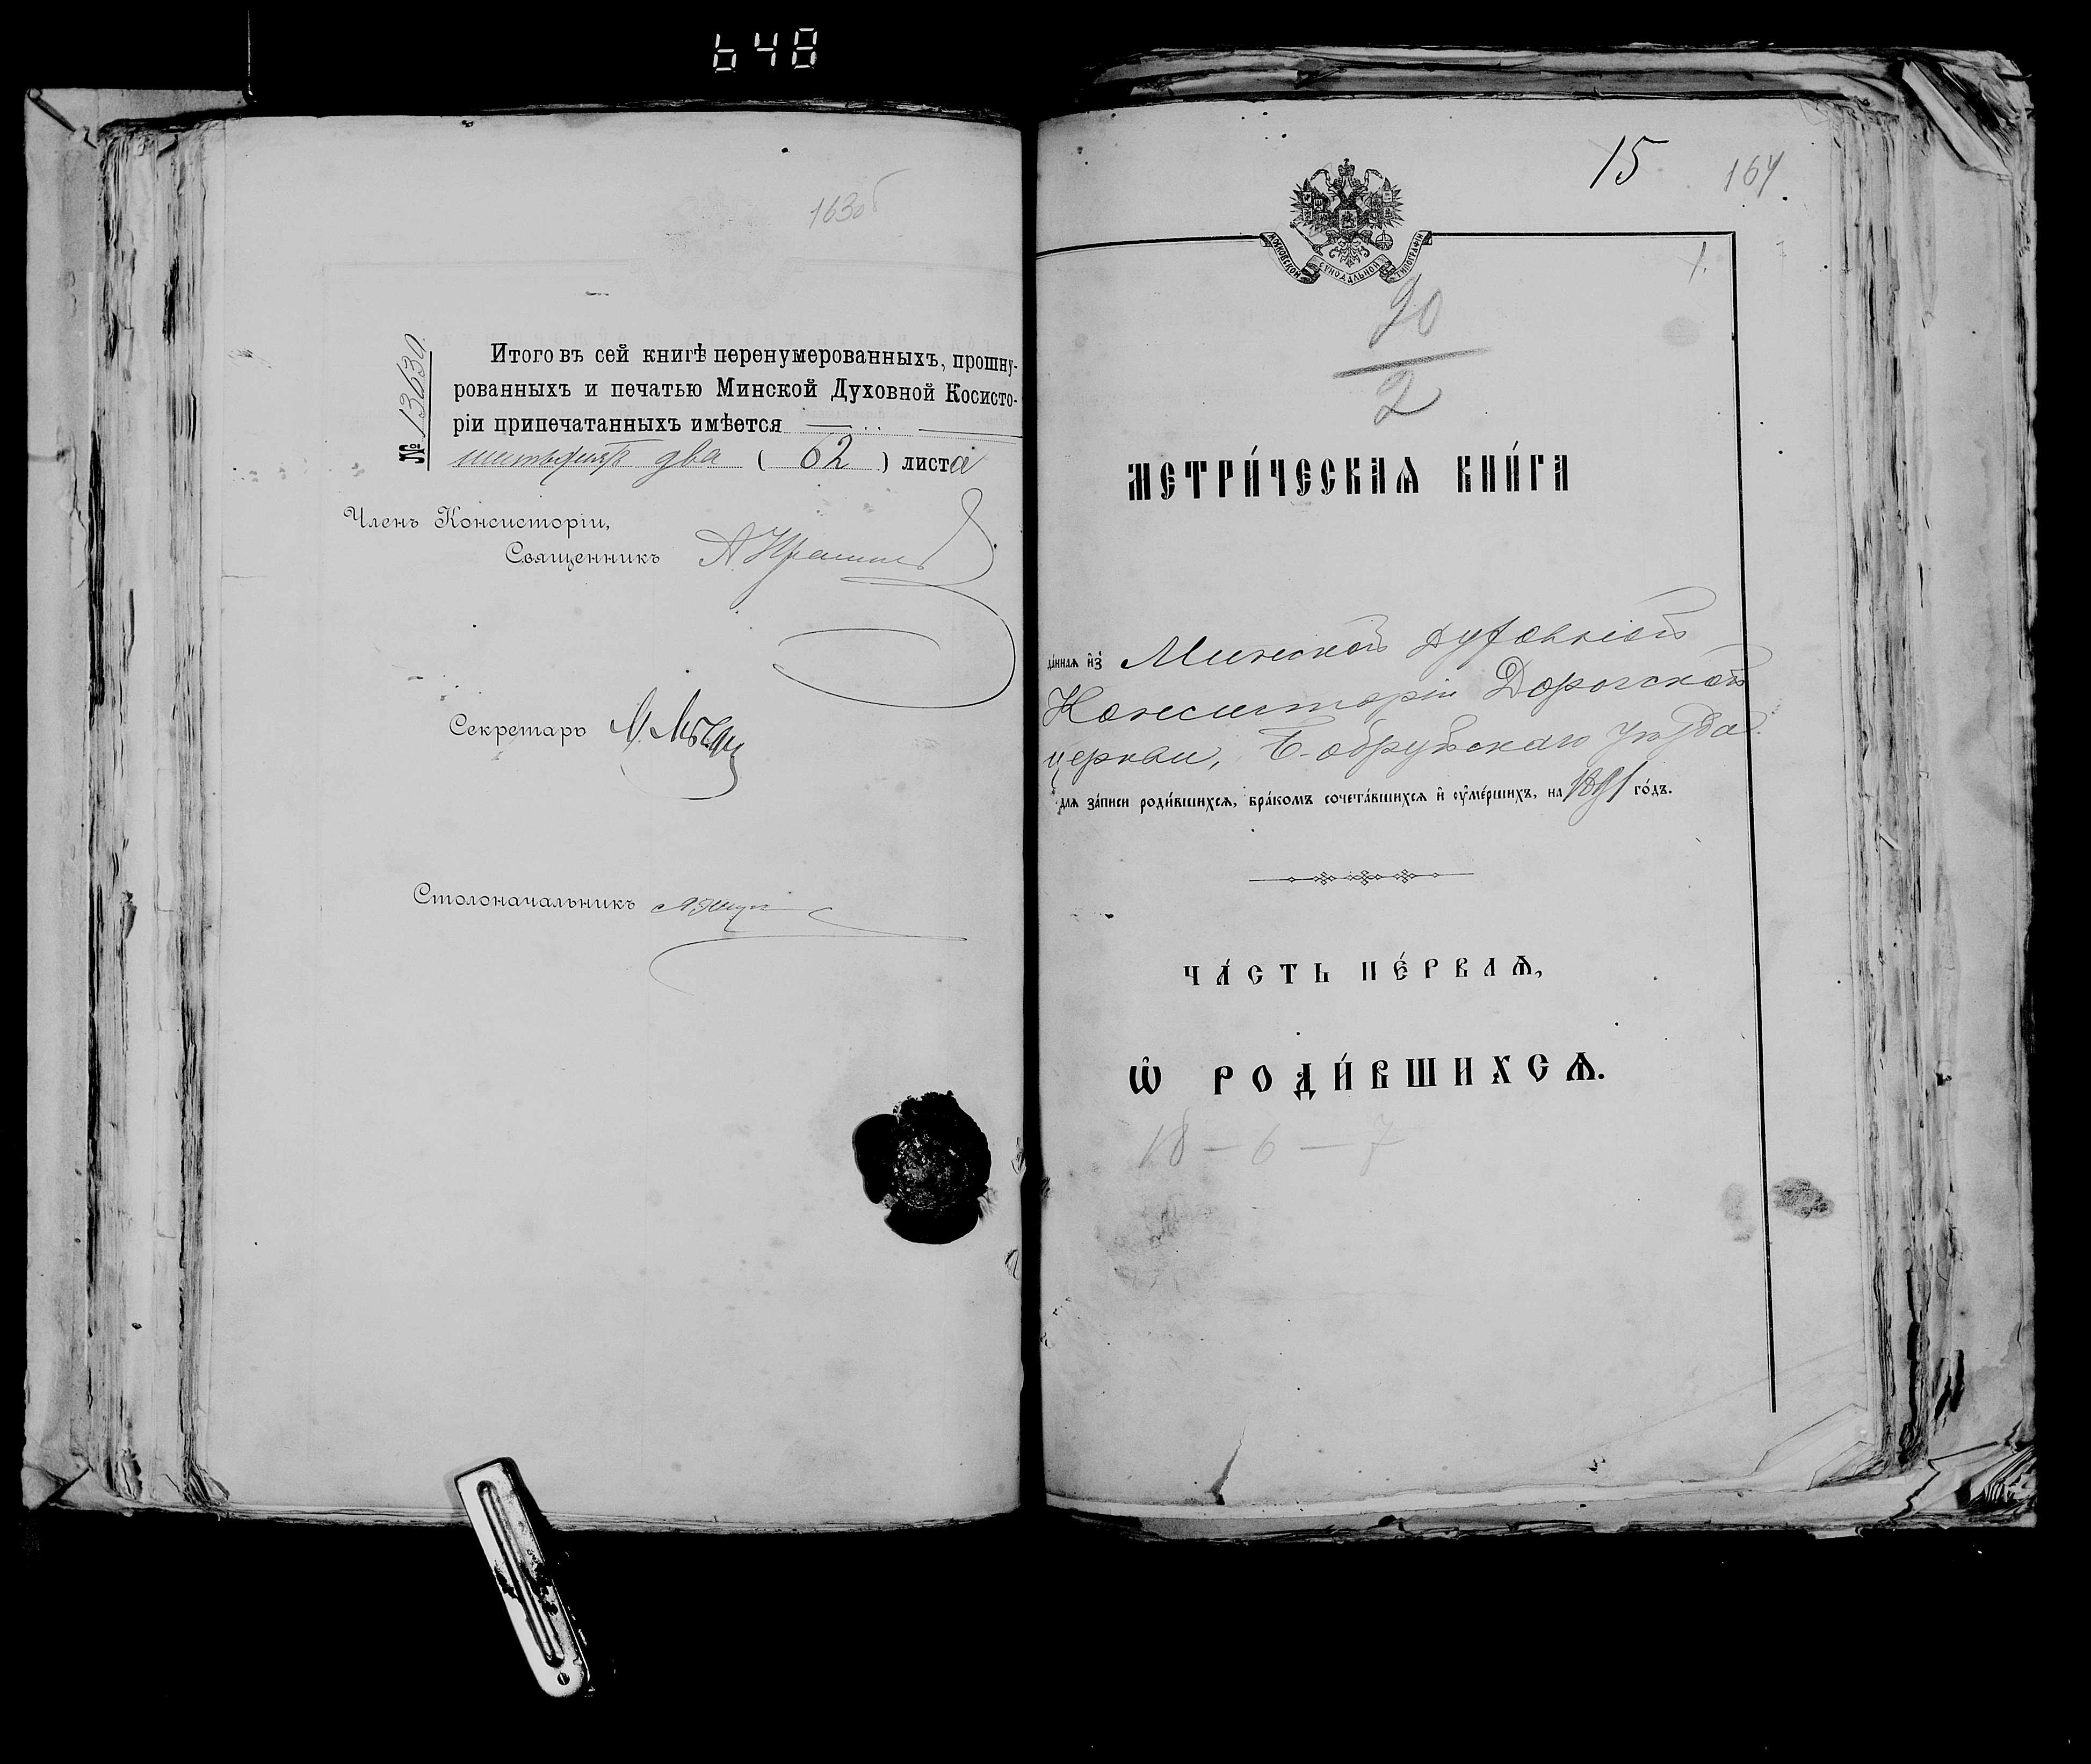 648
163об
№ 13630.
Итого въ сей книгѣ перенумерованныхъ, прошну-
рованныхъ и печатью Минской Духовной Косисто-
ріи припечатанныхъ имѣется
шестьдесятъ два ( 62 ) листа
Членъ Консисторіи,
Священникъ
Секретарь
Столоначальникъ
15 164
МОСКОВСКОЙ СѴНОДАЛЬНОЙ ТИПОГРАФІИ
1.
90
2
МЕТРИ́ЧЕСКАѦ КНИ́ГА
да́ннаѧ и҆з̾ Минской Духовной
Консисторіи Дорогской
церкви, Бобруйскаго уѣзда.
длѧ за́писи роди́вшихсѧ, бра́комъ сочета́вшихсѧ и҆ ᲂу҆ме́ршихъ, на 1891 го́дъ.
ЧА́СТЬ ПЕ́РВАѦ,
Ѡ҆ РОДИ́ВШИХСѦ.
18 - 6 - 7